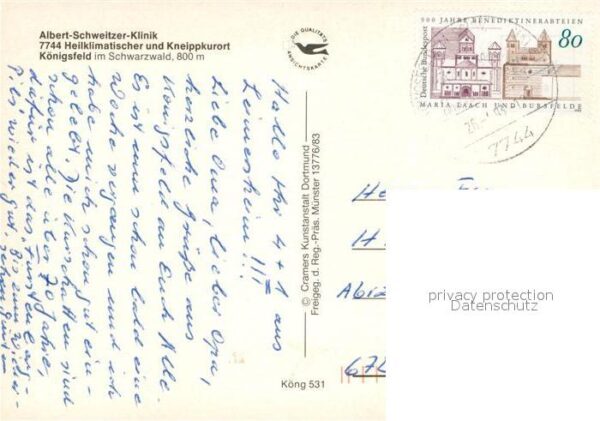 Albert-Schweitzer-Klinik
7744 Heilklimatischer und Kneippkurort
Königsfeld im Schwarzwald, 800 m
DIE QUALITÄTS
ANSICHTSKARTE
900 JAHRE BENEDIKTINERABTEIEN
80
Deutsche Bundespost
MARIA LAACH UND BURSFELDE
7744
Hallo Ihr 4 + 1 aus
Leimersheim !!!
Liebe Oma, lieber Opa,
herzliche Grüße aus
Königsfeld an Euch Alle.
Es ist nun schon bald eine
Woche vergangen und ich
habe mich schon gut ein-
gelebt. Die Kurschatten sind
schon alle über 70 Jahre,
dafür ist das
wieder gut. Bis zum Wieder-
© Cramers Kunstanstalt Dortmund
Freigeg. d. Reg.-Präs. Münster 13776/83
Köng 531
He
H
Abi
674
privacy protection
Datenschutz